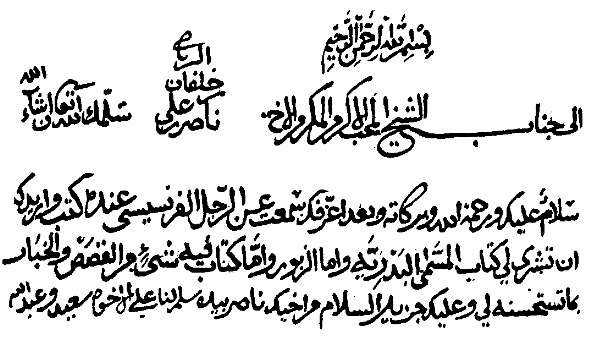 بسم الله الرحمن الرحيم
الى جناب الشيخ المحب الاكرم المكرم الاخ ناصر بن علي خلفان سلمك الله تعالى ان شاء الله
سلام عليكم ورحمة الله وبركاته وبعد اعرفك سمعت عن الرجل الفرنسيسي عنده كتب واريدك
ان تشتري لي كتاب المسمى واما الزبور واما كتاب فيه شيء من القصص والاخبار
بما تستحسنه لي وعليكم جزيل السلام من اخيك ناصر بيده سلم لنا على الاخوة سعيد وعبد الله